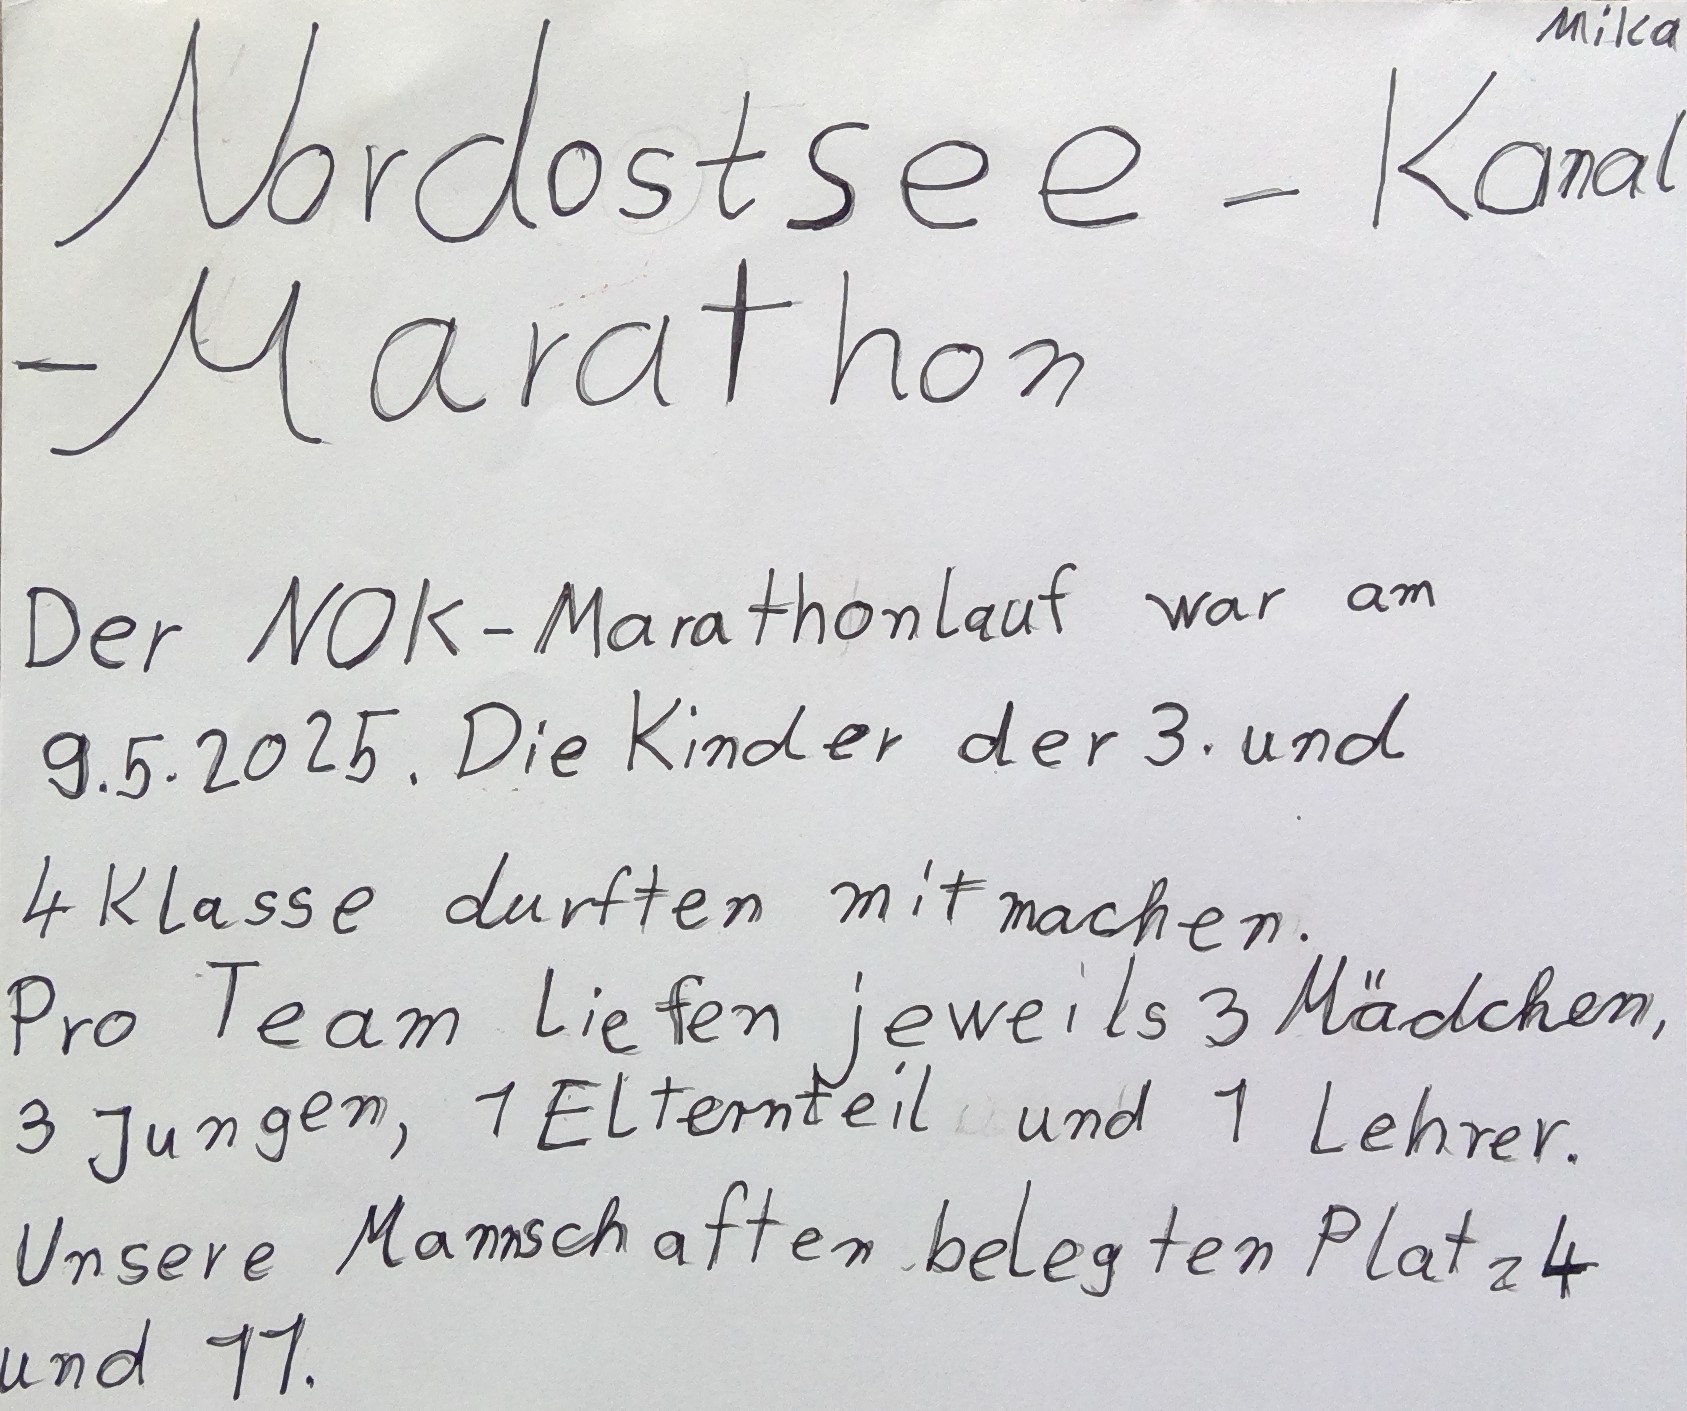 Mika
Nordostsee - Kanal
- Marathon
Der NOK-Marathonlauf war am
9.5.2025. Die Kinder der 3. und
4 Klasse durften mitmachen.
Pro Team liefen jeweils 3 Mädchen,
3 Jungen, 1 Elternteil und 1 Lehrer.
Unsere Mannschaften belegten Platz 4
und 11.